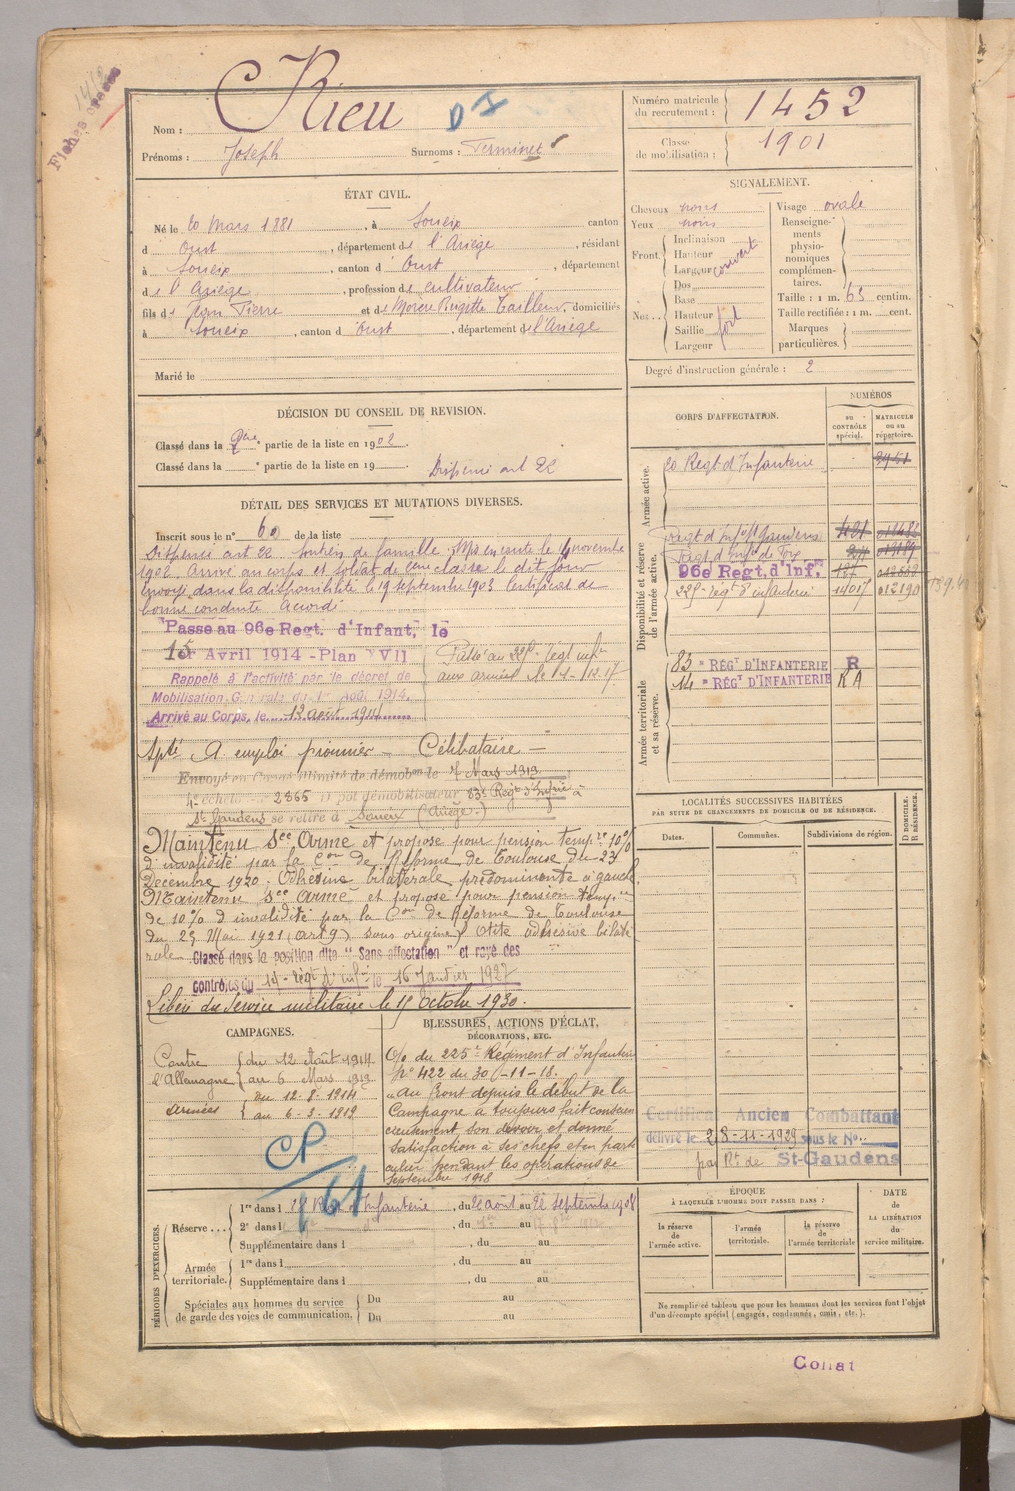 Fiches
Nom : Rieu
Prénoms : Joseph Surnoms : Terminet
Numéro matricule du recrutement : 1452
Classe de mobilisation : 1901
ÉTAT CIVIL.
Né le 20 Mars 1881, à Soueix canton
d Oust, département de l'Ariège, résidant
à Soueix, canton d Oust, département
de l'Ariège, profession de cultivateur
fils de Jean Pierre et de Marie Brigitte Tailleur, domiciliés
à Soueix, canton d Oust, département de l'Ariège
Marié le
SIGNALEMENT.
Cheveux noirs
Yeux noirs
Front. Inclinaison
Hauteur
Largeur couvert
Nez.. Dos
Base
Hauteur
Saillie fort
Largeur
Visage ovale
Renseigne-
ments
physio-
nomiques
complémen-
taires.
Taille : 1 m. 65 centim.
Taille rectifiée : 1 m. cent.
Marques
particulières.
Degré d'instruction générale : 2
DÉCISION DU CONSEIL DE REVISION.
Classé dans la partie de la liste en 1902.
Classé dans la partie de la liste en 19
Dispensé art 22
DÉTAIL DES SERVICES ET MUTATIONS DIVERSES.
Inscrit sous le n° 60 de la liste
Dispensé art 22 Soutien de famille. Mis en route le 4 novembre
1902. Arrivé au corps et soldat de 2eme classe le dit jour
Envoyé dans la disponibilité le 19 septembre 1903 Certificat de
bonne conduite Accordé
Passe au 96e Regt. d'Infant, le
1er Avril 1914 - Plan XVII
Passé au 225e Régt infie
aux armées le
Rappelé à l'activité par le décret de
Mobilisation Générale du 1er Août 1914.
Arrivé au Corps, le 12 août 1914
Apte A emploi pionnier - Célibataire -
Envoyé en Congé illimité de démobon le 7 Mars 1919
4e échelon n° 2865 Dépôt démobilisateur 83e Regt d'Infrie à
St Gaudens se retire à Soueix (Ariège.)
Maintenu See Armé et proposé pour pension tempre 10%
d'invalidité par la Con de Réforme de Toulouse du 23
Décembre 1920. Adhésive bilatérale prédominante à gauche
Maintenu See armé et proposé pour pension tempre
de 10% d'invalidité par la Con de Réforme de Toulouse
du 25 Mai 1921 (art 9) sous origine) Otite adhésive bilaté
rale Classé dans la position dite "Sans affectation" et rayé des
contrôles du 14e régt d'infie le 16 Janvier 1927
Libéré du Service militaire le 15 Octobre 1930.
CORPS D'AFFECTATION.
NUMÉROS
au CONTRÔLE spécial.
MATRICULE ou au répertoire.
Armée active.
20 Regt d'Infanterie 2951
Disponibilité et réserve de l'armée active.
Regt d'Infie St Gaudens 491
Regt d'Infie de Foix
96e Regt. d'Inf.
225e régt d'infanterie 14017 012190
Armée territoriale et sa réserve.
83e RÉGT D'INFANTERIE R
14e RÉGT D'INFANTERIE RA
LOCALITÉS SUCCESSIVES HABITÉES
PAR SUITE DE CHANGEMENTS DE DOMICILE OU DE RÉSIDENCE.
Dates. Communes. Subdivisions de région. D DOMICILE. R RÉSIDENCE.
Certificat Ancien Combattant
délivré le 28-11-1929 sous le N°
par Rt de St-Gaudens
CAMPAGNES.
Contre l'Allemagne { du 12 Août 1914
au 6 Mars 1919
Armées { du 12-8-1914
au 6-3-1919
CP
161
BLESSURES, ACTIONS D'ÉCLAT,
DÉCORATIONS, ETC.
O/o du 225e Régiment d'Infanterie
n° 422 du 30-11-18.
"au front depuis le début de la
Campagne a toujours fait conscien
cieusement son devoir et donné
satisfaction à ses chefs et en parti
culier pendant les opérations de
Septembre 1918
PÉRIODES D'EXERCICES.
Réserve... 1re dans l Regt d'Infanterie, du août au 22 septembre 1908
2e dans l , du au
Supplémentaire dans l , du au
Armée territoriale. 1re dans l , du au
Supplémentaire dans l , du au
Spéciales aux hommes du service
de garde des voies de communication. Du au
Du au
ÉPOQUE
À LAQUELLE L'HOMME DOIT PASSER DANS :
la réserve de l'armée active. l'armée territoriale. la réserve de l'armée territoriale
DATE DE LA LIBÉRATION du service militaire.
Ne remplir ce tableau que pour les hommes dont les services font l'objet
d'un décompte spécial (engagés, condamnés, omis, etc.).